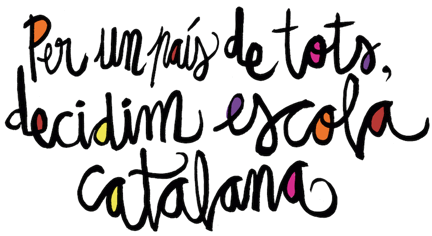 Per un país de tots,
decidim escola
catalana